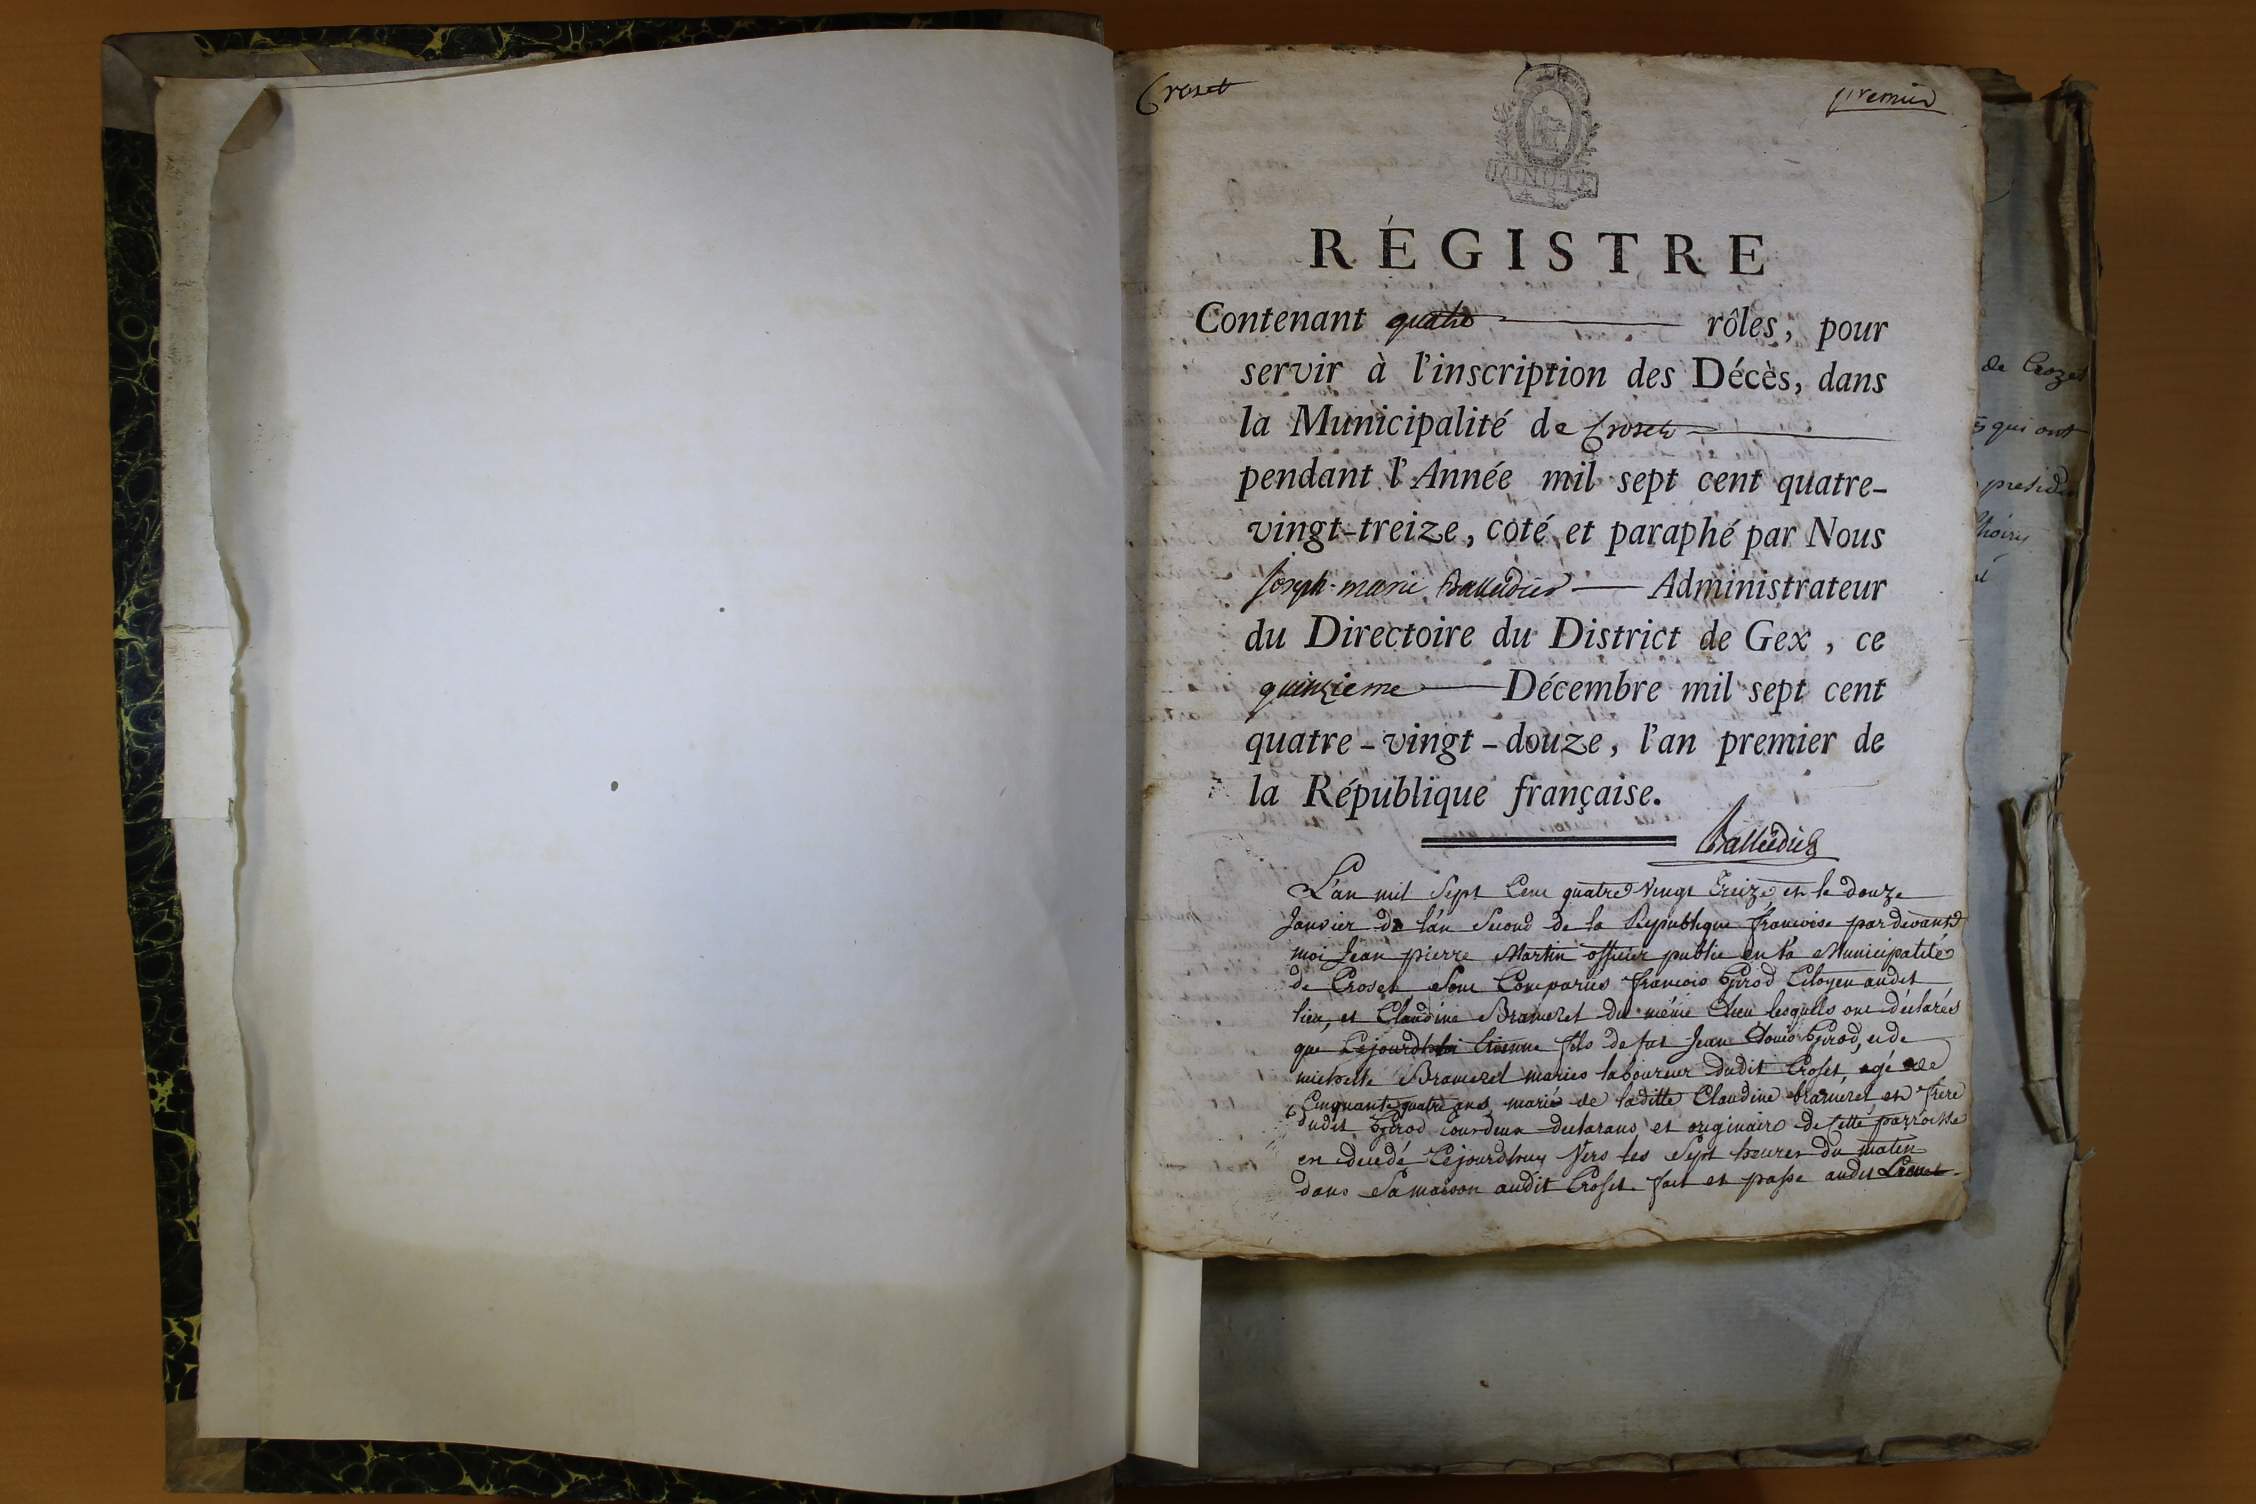 Croset
premier
MINUTE
RÉGISTRE
Contenant quatre rôles, pour
servir à l'inscription des Décès, dans
la Municipalité de Croset
pendant l'Année mil sept cent quatre-
vingt-treize, coté et paraphé par Nous
Joseph-marie Balleidier Administrateur
du Directoire du District de Gex, ce
quinzieme Décembre mil sept cent
quatre-vingt-douze, l'an premier de
la République française.
Balleidier
L'an mil Sept Cent quatre Vingt Treize et le douze
Janvier de l'an Second de la Republique francoise par devant
moi Jean pierre Martin officier public en la Municipalité
de Croset Sont Comparus francois Girod Citoyen audit
lieu, et Claudine Brameret du même Lieu lesquels ont déclarés
que Cejourdhui Etienne fils de fut Jean Louis Girod, et de
michelle Brameret mariés laboureur dudit Croset agé de
Cinquante quatre ans marié de laditte Claudine brameret et frère
dudit Girod tout deux declarans et originaire de Cette parroisse
est decedé Cejourdhuy Vers les Sept heures du matin
dans Sa maison audit Croset. fait et passé audit Croset
de Crozet
qui ont
presiden
Thoiry